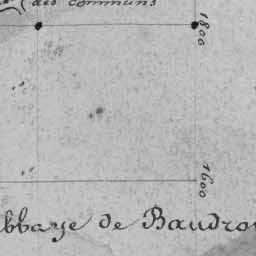 des communs
1800
1600
bbaye de Baudro